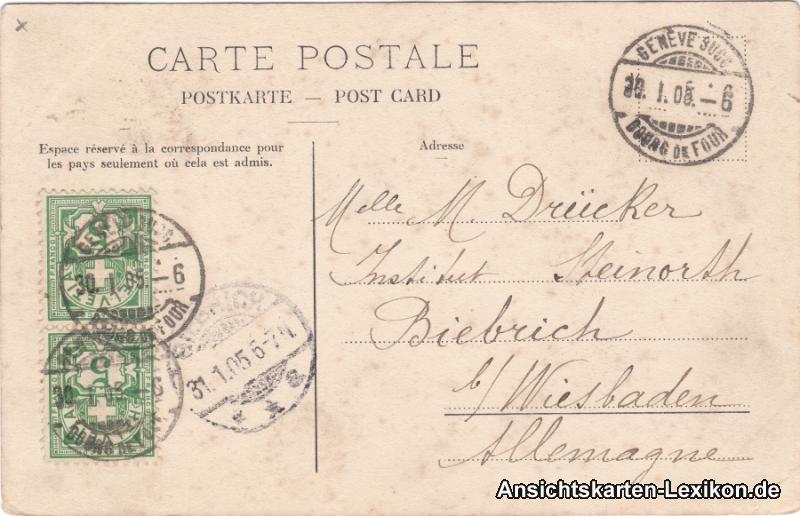 CARTE POSTALE
POSTKARTE — POST CARD
Espace réservé à la correspondance pour
les pays seulement où cela est admis.
Adresse
GENÈVE SUCC
30. I. 05. – 6
BOURG DE FOUR
Melle M. Drücker
Institut Steinorth
Biebrich
b/ Wiesbaden
Allemagne
FRANCO
5
HELVETIA
30. I. 05. – 6
31. 1. 05 6-7 N.
5
Ansichtskarten-Lexikon.de